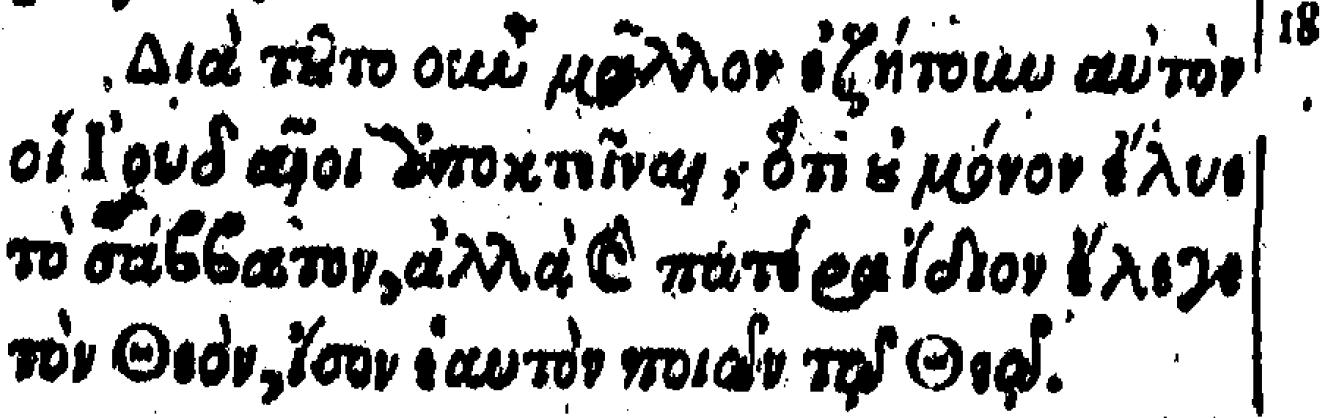 Διὰ τοῦτο οὖν μᾶλλον ἐζήτουν αὐτὸν 18
οἱ Ἰουδαῖοι ἀποκτεῖναι, ὅτι οὐ μόνον ἔλυε
τὸ σάββατον, ἀλλὰ καὶ πατέρα ἴδιον ἔλεγε
τὸν Θεὸν, ἴσον ἑαυτὸν ποιῶν τῷ Θεῷ.